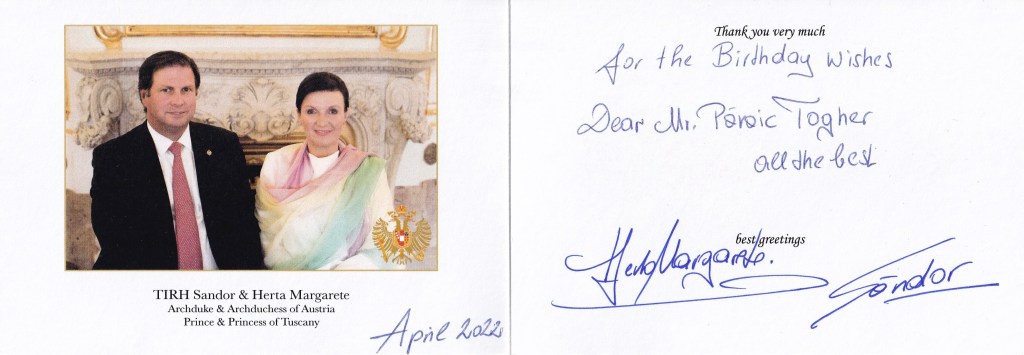 TIRH Sandor & Herta Margarete
Archduke & Archduchess of Austria
Prince & Princess of Tuscany
April 2022
Thank you very much
for the Birthday wishes
Dear Mr. Pároic Togher
all the best
best greetings
Herta Margarete.
Sándor